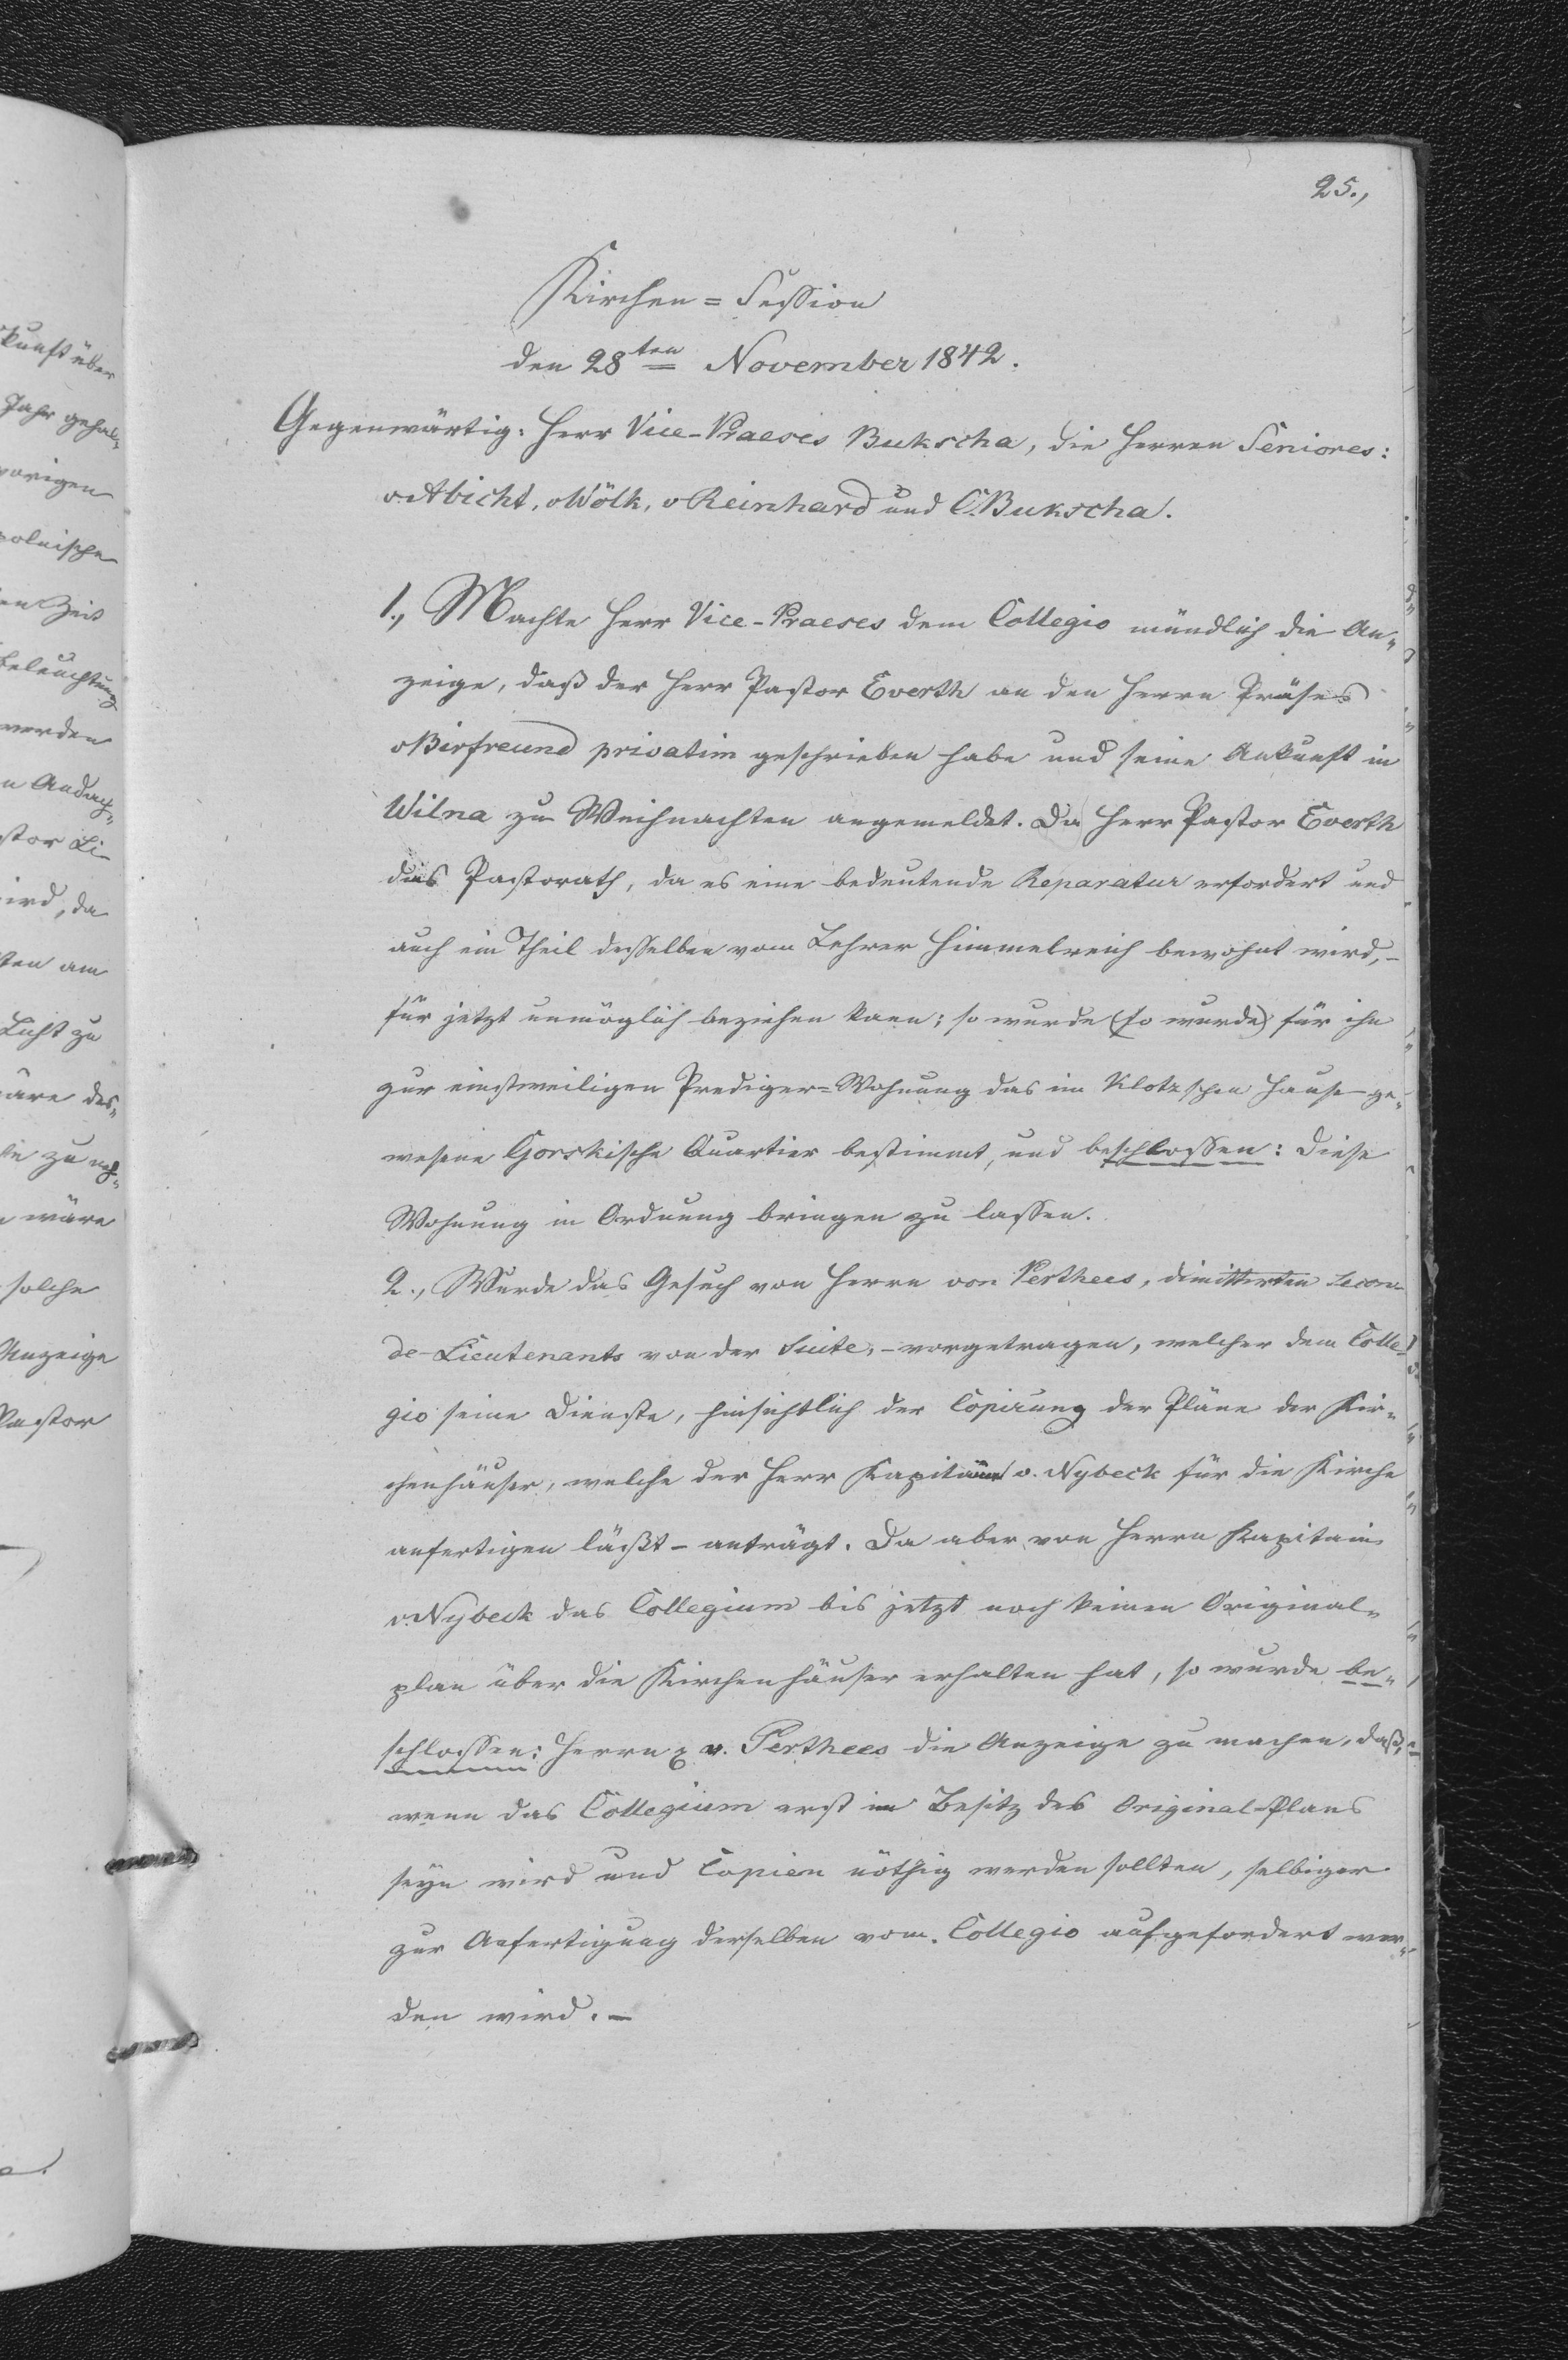 25.,
Kirchen=Session
den 28ten November 1842.
Gegenwärtig: Herr Vice-Praeses Bukscha, die Herren Seniores:
v.Abicht, vWölk, vReinhard und C.Bukscha.
1., Machte Herr Vice-Praeses dem Collegio mündlich die An„
zeige, daß der Herr Pastor Everth an den Herrn Präses
vBirfreund privatim geschrieben habe und seine Ankunft in
Wilna zu Weihnachten angemeldet. Da Herr Pastor Everth
das Pastorath, da es eine bedeutende Reparatur erfordert und
auch ein Theil desselben vom Lehrer Himmelreich bewohnt wird,-
für jetzt unmöglich beziehen kann; so wurde (so wurde) für ihn
zur einstweiligen Prediger=Wohnung das im Klotzschen Hause ge„
wesene Gorskische Quartier bestimmt, und beschlossen: diese
Wohnung in Ordnung bringen zu lassen.
2., Wurde das Gesuch von Herrn von Perthees, dimittirten Secon-
de-Lieutenants von der Suite,-vorgetragen, welcher dem Colle„
gio seine Dienste, hinsichtlich der Copirung der Pläne der Kir„
chenhäuser, welche der Herr Kapitain v. Nybeck für die Kirche
anfertigen läßt - anträgt. Da aber von Herrn Kapitain
v.Nybeck das Collegium bis jetzt noch keinen Original„
plan über die Kirchenhäuser erhalten hat, so wurde be„
schlossen: Herrn v. Perthees die Anzeige zu machen, daß,
wenn das Collegium erst im Besitz des Original-Plans
seyn wird und Copien nöthig werden sollten, selbiger
zur Anfertigung derselben vom Collegio aufgefordert wer„
den wird.-